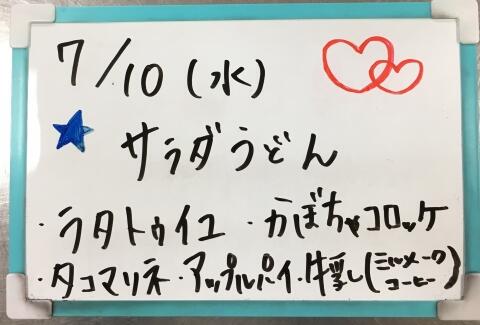 7/10(水)
サラダうどん
・ラタトゥイユ ・かぼちゃコロッケ
・タコマリネ・アップルパイ・牛乳(ミルメークコーヒー)